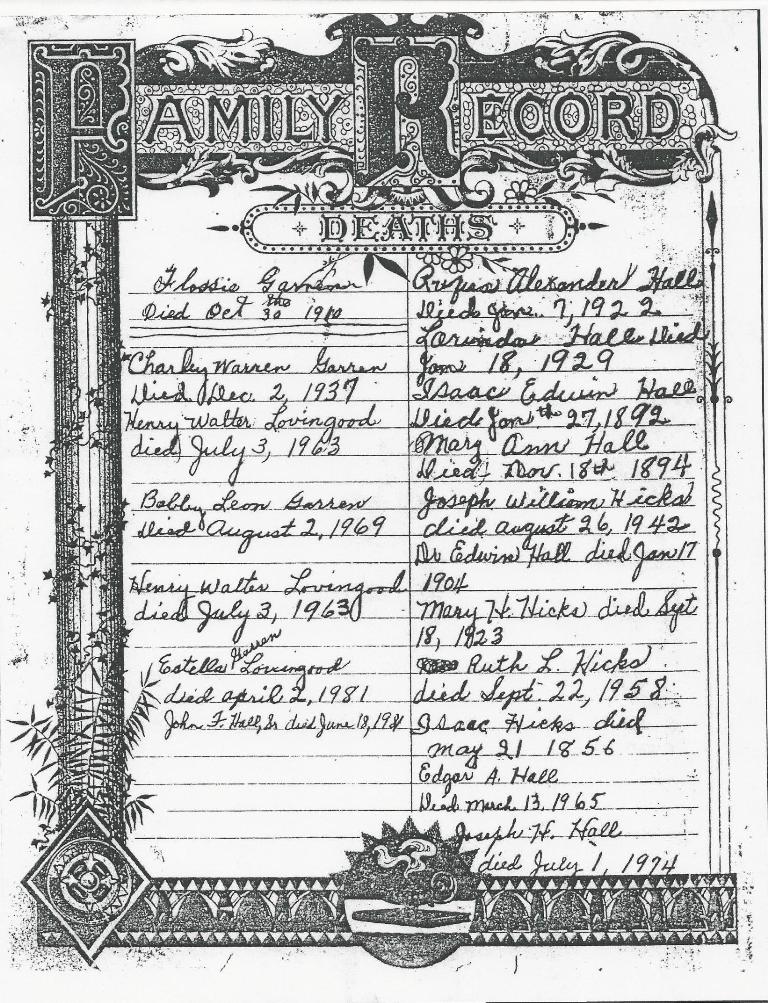 FAMILY RECORD
DEATHS
Flossie Garren
Died Oct the 30 1910
Charley Warren Garren
Died Dec. 2, 1937
Henry Walter Lovingood
died July 3, 1963
Bobby Leon Garren
Died August 2, 1969
Henry Walter Lovingood
died July 3, 1963
Estella Garren Lovingood
died april 2, 1981
John F. Hall, Sr died June 18, 1981
Rufus Alexander Hall
Died Jan. 7, 1922
Lorinda Hall Died
Jan 18, 1929
Isaac Edwin Hall
Died Jan th 27, 1892
Mary Ann Hall
Died Nov. 18th 1894
Joseph William Hicks
died august 26, 1942
Dr Edwin Hall died Jan 17
1904
Mary H. Hicks died Sept
18, 1923
Ruth L. Hicks
died Sept. 22, 1958
Isaac Hicks died
may 21 1856
Edgar A. Hall
Died March 13, 1965
Joseph H. Hall
died July 1, 1974